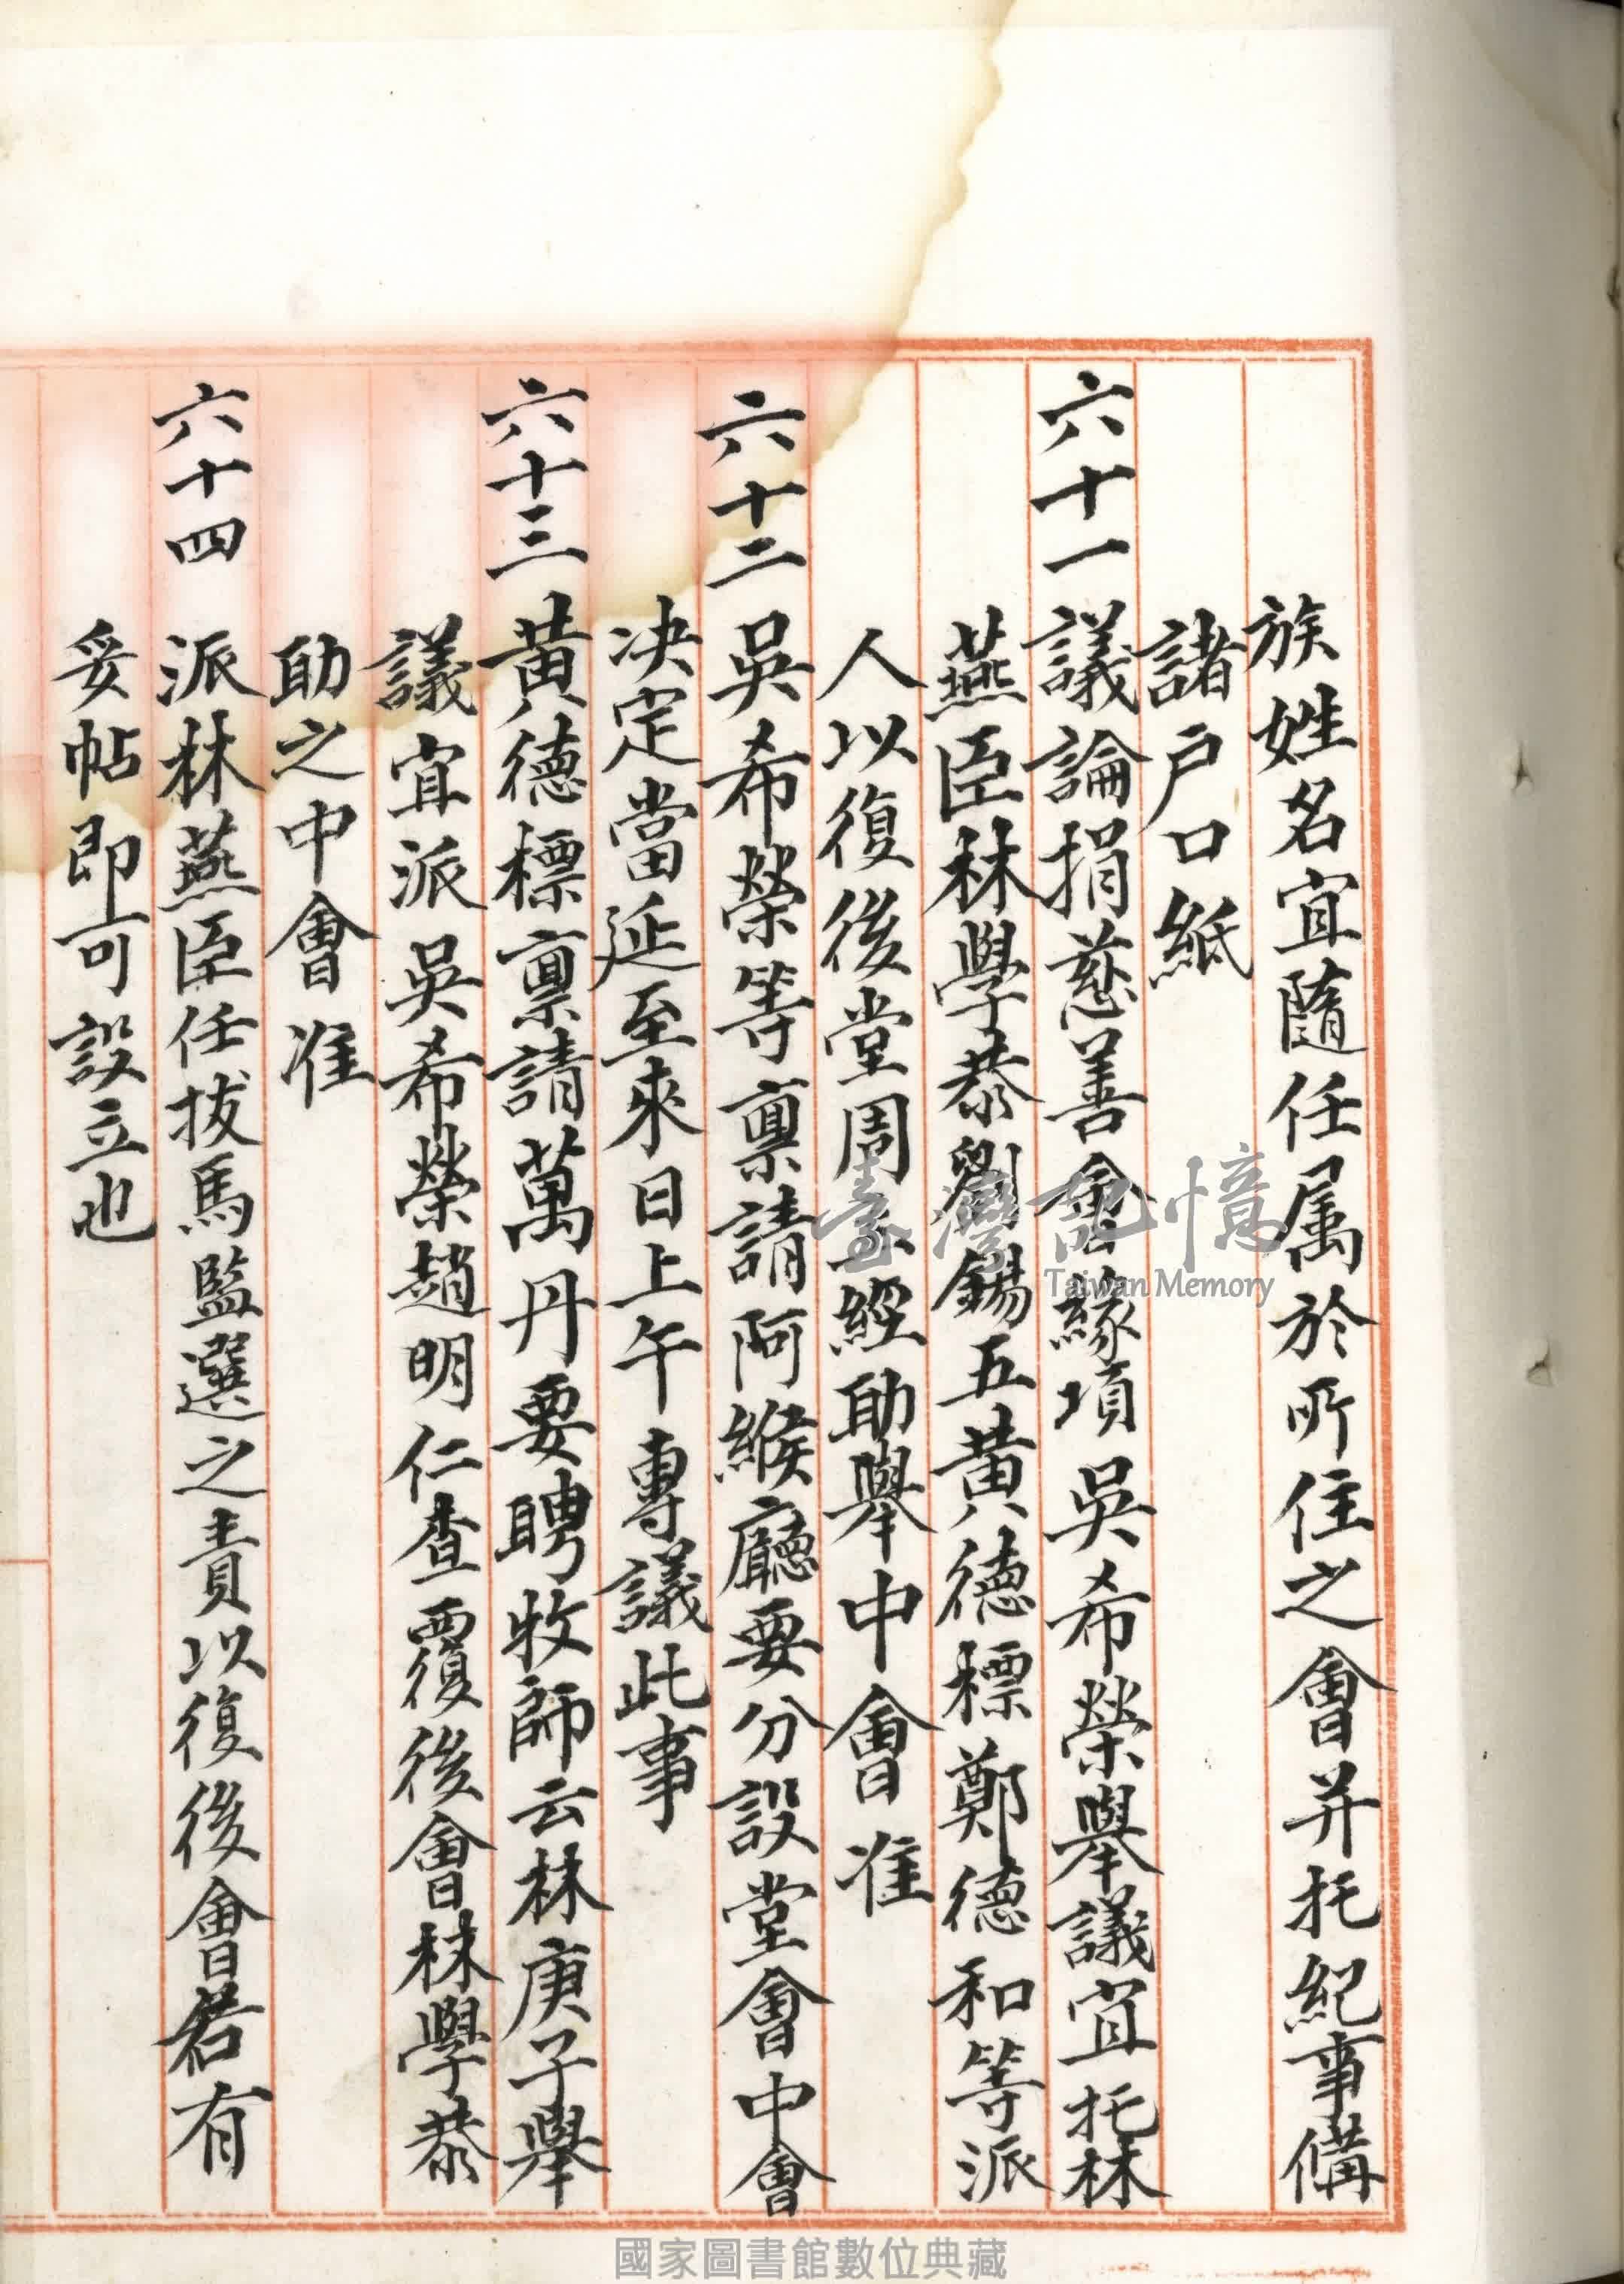 族姓名宜隨任属於所住之會并托紀事備
諸户口紙
六十一 議論捐慈善會緣項吳希榮舉議宜托林
燕臣林學恭劉錫五黃德標鄭德和等派
人以復後堂周 經助舉中會准
六十二 吳希榮等禀請阿緱廳要分設堂會中會
决定當延至來日上午專議此事
六十三 黃德標禀請萬丹要聘牧師云林庚子舉
議宜派吳希榮趙明仁查覆後會林學恭
助之中會准
六十四 派林燕臣任拔馬監選之責以復後會若有
妥帖即可設立也
臺灣記憶
Taiwan Memory
國家圖書館數位典藏